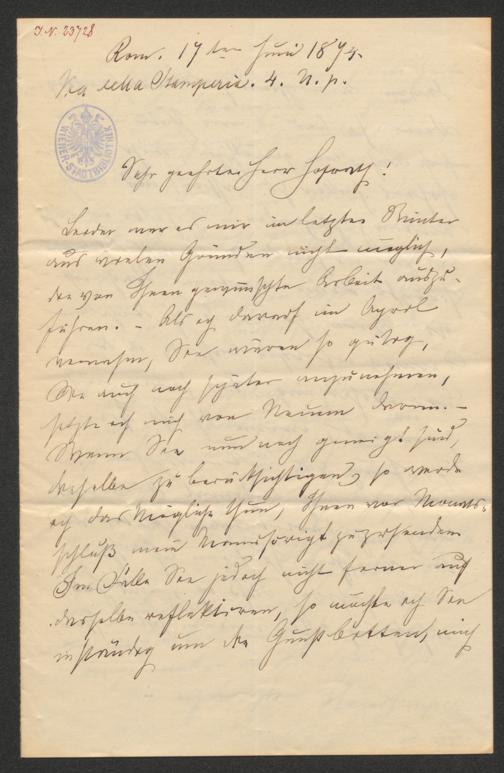 J. N. 23728
Rom. 17ten Juni 1874.
Via della Stamperia. 4. U. p.
WIENER-STADTBIBLIOTHEK
Sehr geehrter Herr Hofrath!
Leider war es mir im letzten Winter
aus vielen Gründen nicht möglich,
die von Ihnen gewünschte Arbeit auszu-
führen. – Als ich darauf im April
vernahm, Sie wären so gütig,
sie auch noch später anzunehmen,
setzte ich mich von Neuem daran. –
Wenn Sie nun noch geneigt sind,
dieselbe zu berücksichtigen, so werde
ich das Mögliche thun, Ihnen vor Monats-
schluß mein Manuscript zuzusenden
Im Falle Sie jedoch nicht ferner auf
dasselbe reflektiren, so möchte ich Sie
inständig um die Gunst bitten, mich